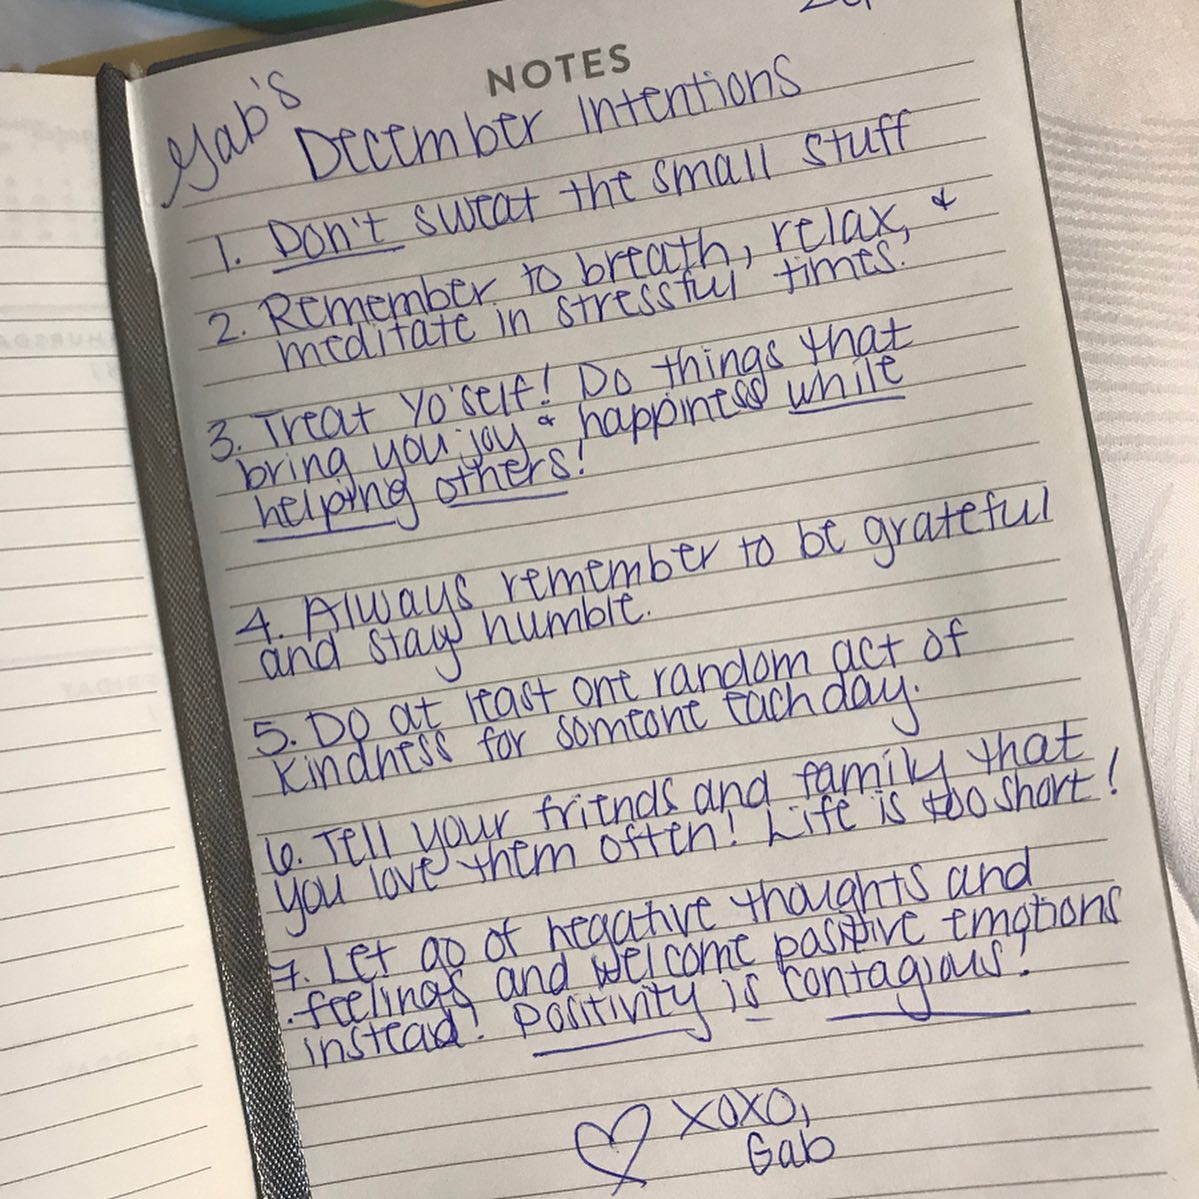 NOTES
Gab's
December Intentions
1. Don't sweat the small stuff
2. Remember to breath, relax, &
meditate in stressful times.
3. Treat Yo'self! Do things that
bring you joy & happiness while
helping others!
4. Always remember to be grateful
and stay humble.
5. Do at least one random act of
kindness for someone each day.
6. Tell your friends and family that
you love them often! Life is too short!
7. Let go of negative thoughts and
feelings and welcome positive emotions
instead! Positivity is contagious!
♡ XOXO,
Gab